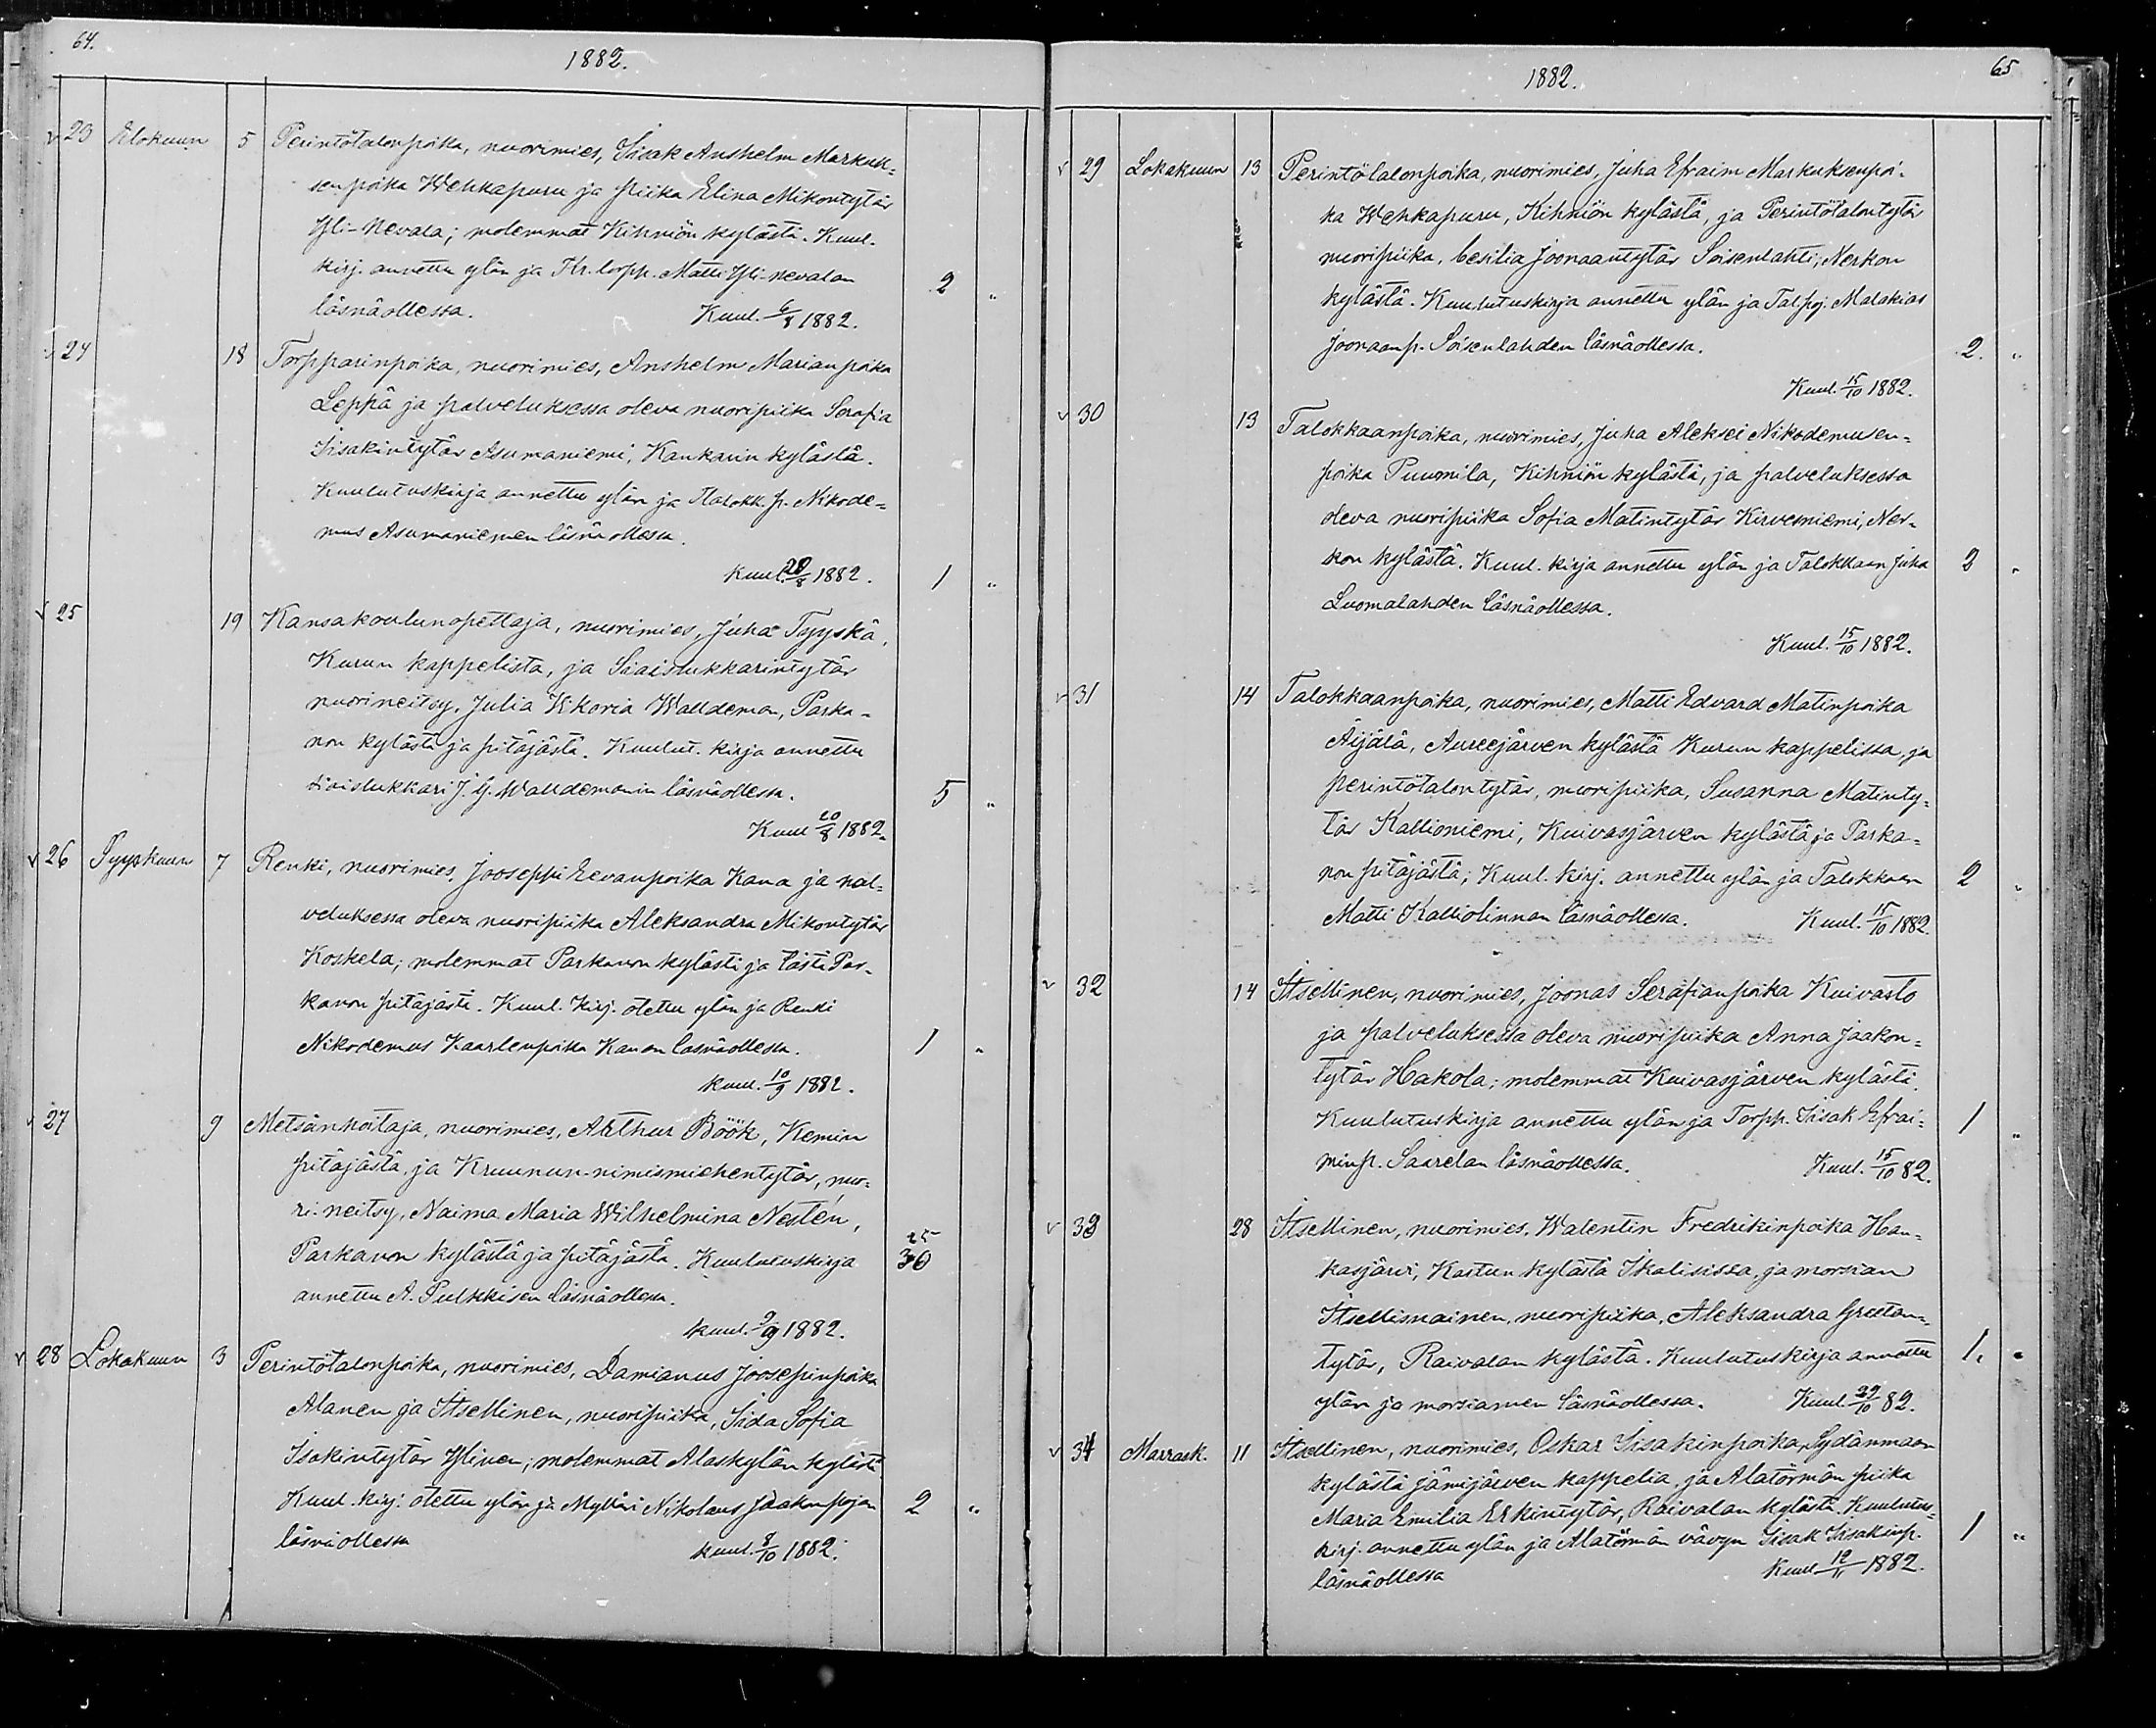 64.
1882.
23 Elokuun 5 Perintötalonpoika, nuorimies, Iisak Anshelm Markuk=
senpoika Wehkapuru ja piika Elina Mikontytär
Yli-Nevala; molemmat Kihniön kylästä. Kuul.
kirj. annettu ylön ja Kr. torpp. Matti Yli-nevalan 2 „
läsnäollessa. Kuul. 6/8 1882.
24 18 Torpparinpoika, nuorimies, Anshelm Marianpoika
Leppä ja palveluksessa oleva nuoripiika Serafia
Iisakintytär Asumaniemi, Kankarin kylästä.
Kuulutuskirja annettu ylön ja Talokk. p. Nikode=
mus Asumaniemen läsnäollessa.
Kuul. 20/8 1882. 1 „
25 19 Kansakoulunopettaja, nuorimies, Juha Tyyskä,
Kurun kappelista, ja Siaislukkarintytär
nuorineitsy, Julia Wikoria Walldeman, Parka-
non kylästä ja pitäjästä. Kuulut. kirja annettu
siaislukkari J. G. Walldemanin läsnäollessa. 5 „
Kuul 20/8 1882.
26 Syyskuun 7 Renki, nuorimies, Jooseppi Eevanpoika Kana ja pal=
veluksessa oleva nuoripiika Aleksandra Mikontytär
Koskela; molemmat Parkanon kylästä ja tästä Par-
kanon pitäjästä. Kuul. Kirj. otettu ylön ja Renki
Nikodemus Kaarlenpoika Kanan läsnäollessa. 1 „
kuul. 10/9 1882.
27 9 Metsänhoitaja, nuorimies, Arthur Böök, Kemin
pitäjästä, ja Kruunun-nimismiehentytär, nuo-
ri-neitsy, Naima Maria Wilhelmina Nestén, 25
Parkanon kylästä ja pitäjästä. Kuulutuskirja 30
annettu A. Pulkkisen läsnäollessa.
kuul. 9/9 1882.
28 Lokakuun 3 Perintötalonpoika, nuorimies, Damianus Joosepinpoika
Alanen ja Itsellinen, nuoripiika, Iida Sofia
Isakintytär Ylinen; molemmat Alaskylän kylästä
Kuul. kirj. otettu ylön ja Mylläri Nikolaus Jaakonpojan 2 „
läsnäollessa kuul. 8/10 1882.
65
1882.
29 Lokakuun 13 Perintötalonpoika, nuorimies, Juha Efraim Markuksenpoi-
ka Wehkapuru, Kihniön kylästä, ja Perintötalontytär
nuoripiika, Cesilia Joonaantytär Soisenlahti, Nerkon
kylästä. Kuulutuskirja annettu ylön ja Tal.poj. Malakias
Joonaanp. Soisenlahden läsnäollessa. 2. „
Kuul. 15/10 1882.
30 13 Talokkaanpoika, nuorimies, Juha Aleksei Nikodemusen=
poika Puumila, Kihniön kylästä, ja palveluksessa
oleva nuoripiika Sofia Matintytär Kirvesniemi, Ner-
kon kylästä. Kuul. kirja annettu ylön ja Talokkaan Juha 2 „
Luomalahden läsnäollessa.
Kuul. 15/10 1882.
31 14 Talokkaanpoika, nuorimies, Matti Edvard Matinpoika
Äijälä, Aureejärven kylästä Kurun kappelissa, ja
perintötalontytär, nuoripiika, Susanna Matinty=
tär Kallioniemi, Kuivasjärven kylästä ja Parka=
non pitäjästä; Kuul. kirj. annettu ylön ja Talokkaan 2 „
Matti Kalliolinnan läsnäollessa. Kuul. 15/10 1882.
32 14 Itsellinen, nuorimies, Joonas Serafianpoika Kuivasto
ja palveluksessa oleva nuoripiika Anna Jaakon=
tytär Hakola; molemmat Kuivasjärven kylästä.
Kuulutuskirja annettu ylön ja Torpp. Iisak Efrai= 1 „
minp. Saarelan läsnäollessa. Kuul. 15/10 82.
33 28 Itsellinen, nuorimies, Walentin Fredrikinpoika Han-
kasjärvi, Kartun kylästä Ikalisissa, ja morsian
Itsellisnainen, nuoripiika, Aleksandra Greetan=
tytär, Raivalan kylästä. Kuulutuskirja annettu 1. „
ylön ja morsiamen läsnäollessa. Kuul. 29/10 82.
34 Marrask. 11 Itsellinen, nuorimies, Oskar Iisakinpoika, Sydänmaan
kylästä Jämijärven kappelia, ja Alatörmän piika
Maria Emilia Erkintytär, Raivalan kylästä. Kuulutus=
kirj. annettu ylön ja Alatörmän vävyn Iisak Iisakinp. 1 „
läsnäollessa Kuul 12/11 1882.